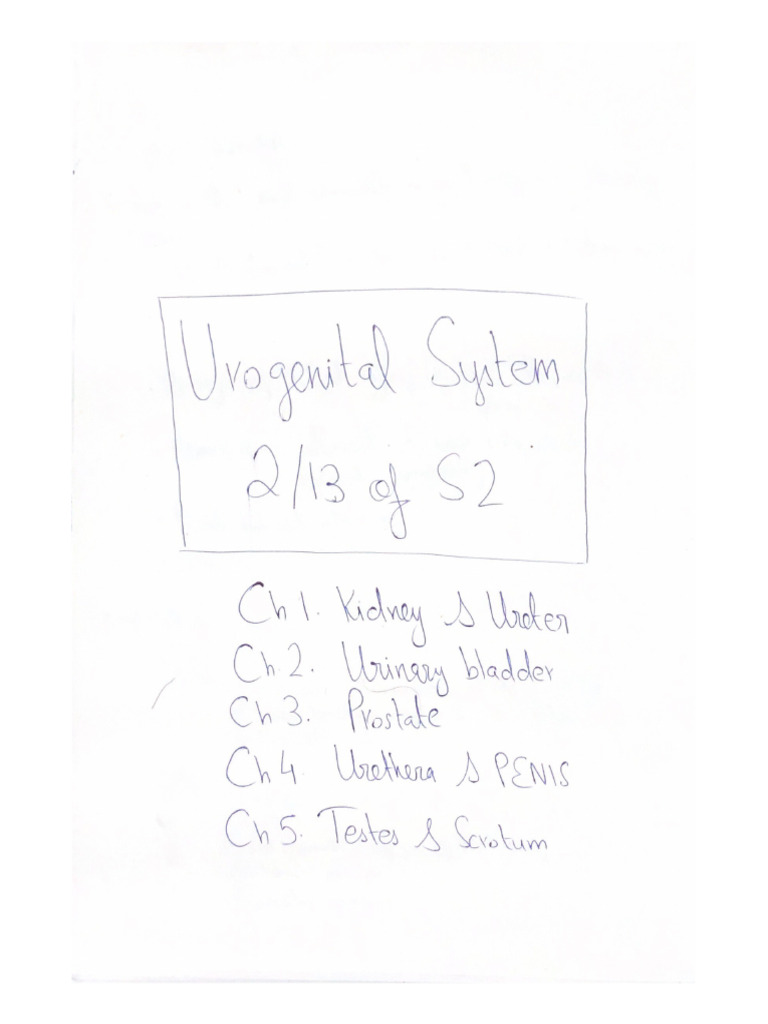 Urogenital System
2/13 of S2
Ch 1. Kidney & Ureter
Ch 2. Urinary bladder
Ch 3. Prostate
Ch 4 Urethera & PENIS
Ch 5. Testes & Scrotum